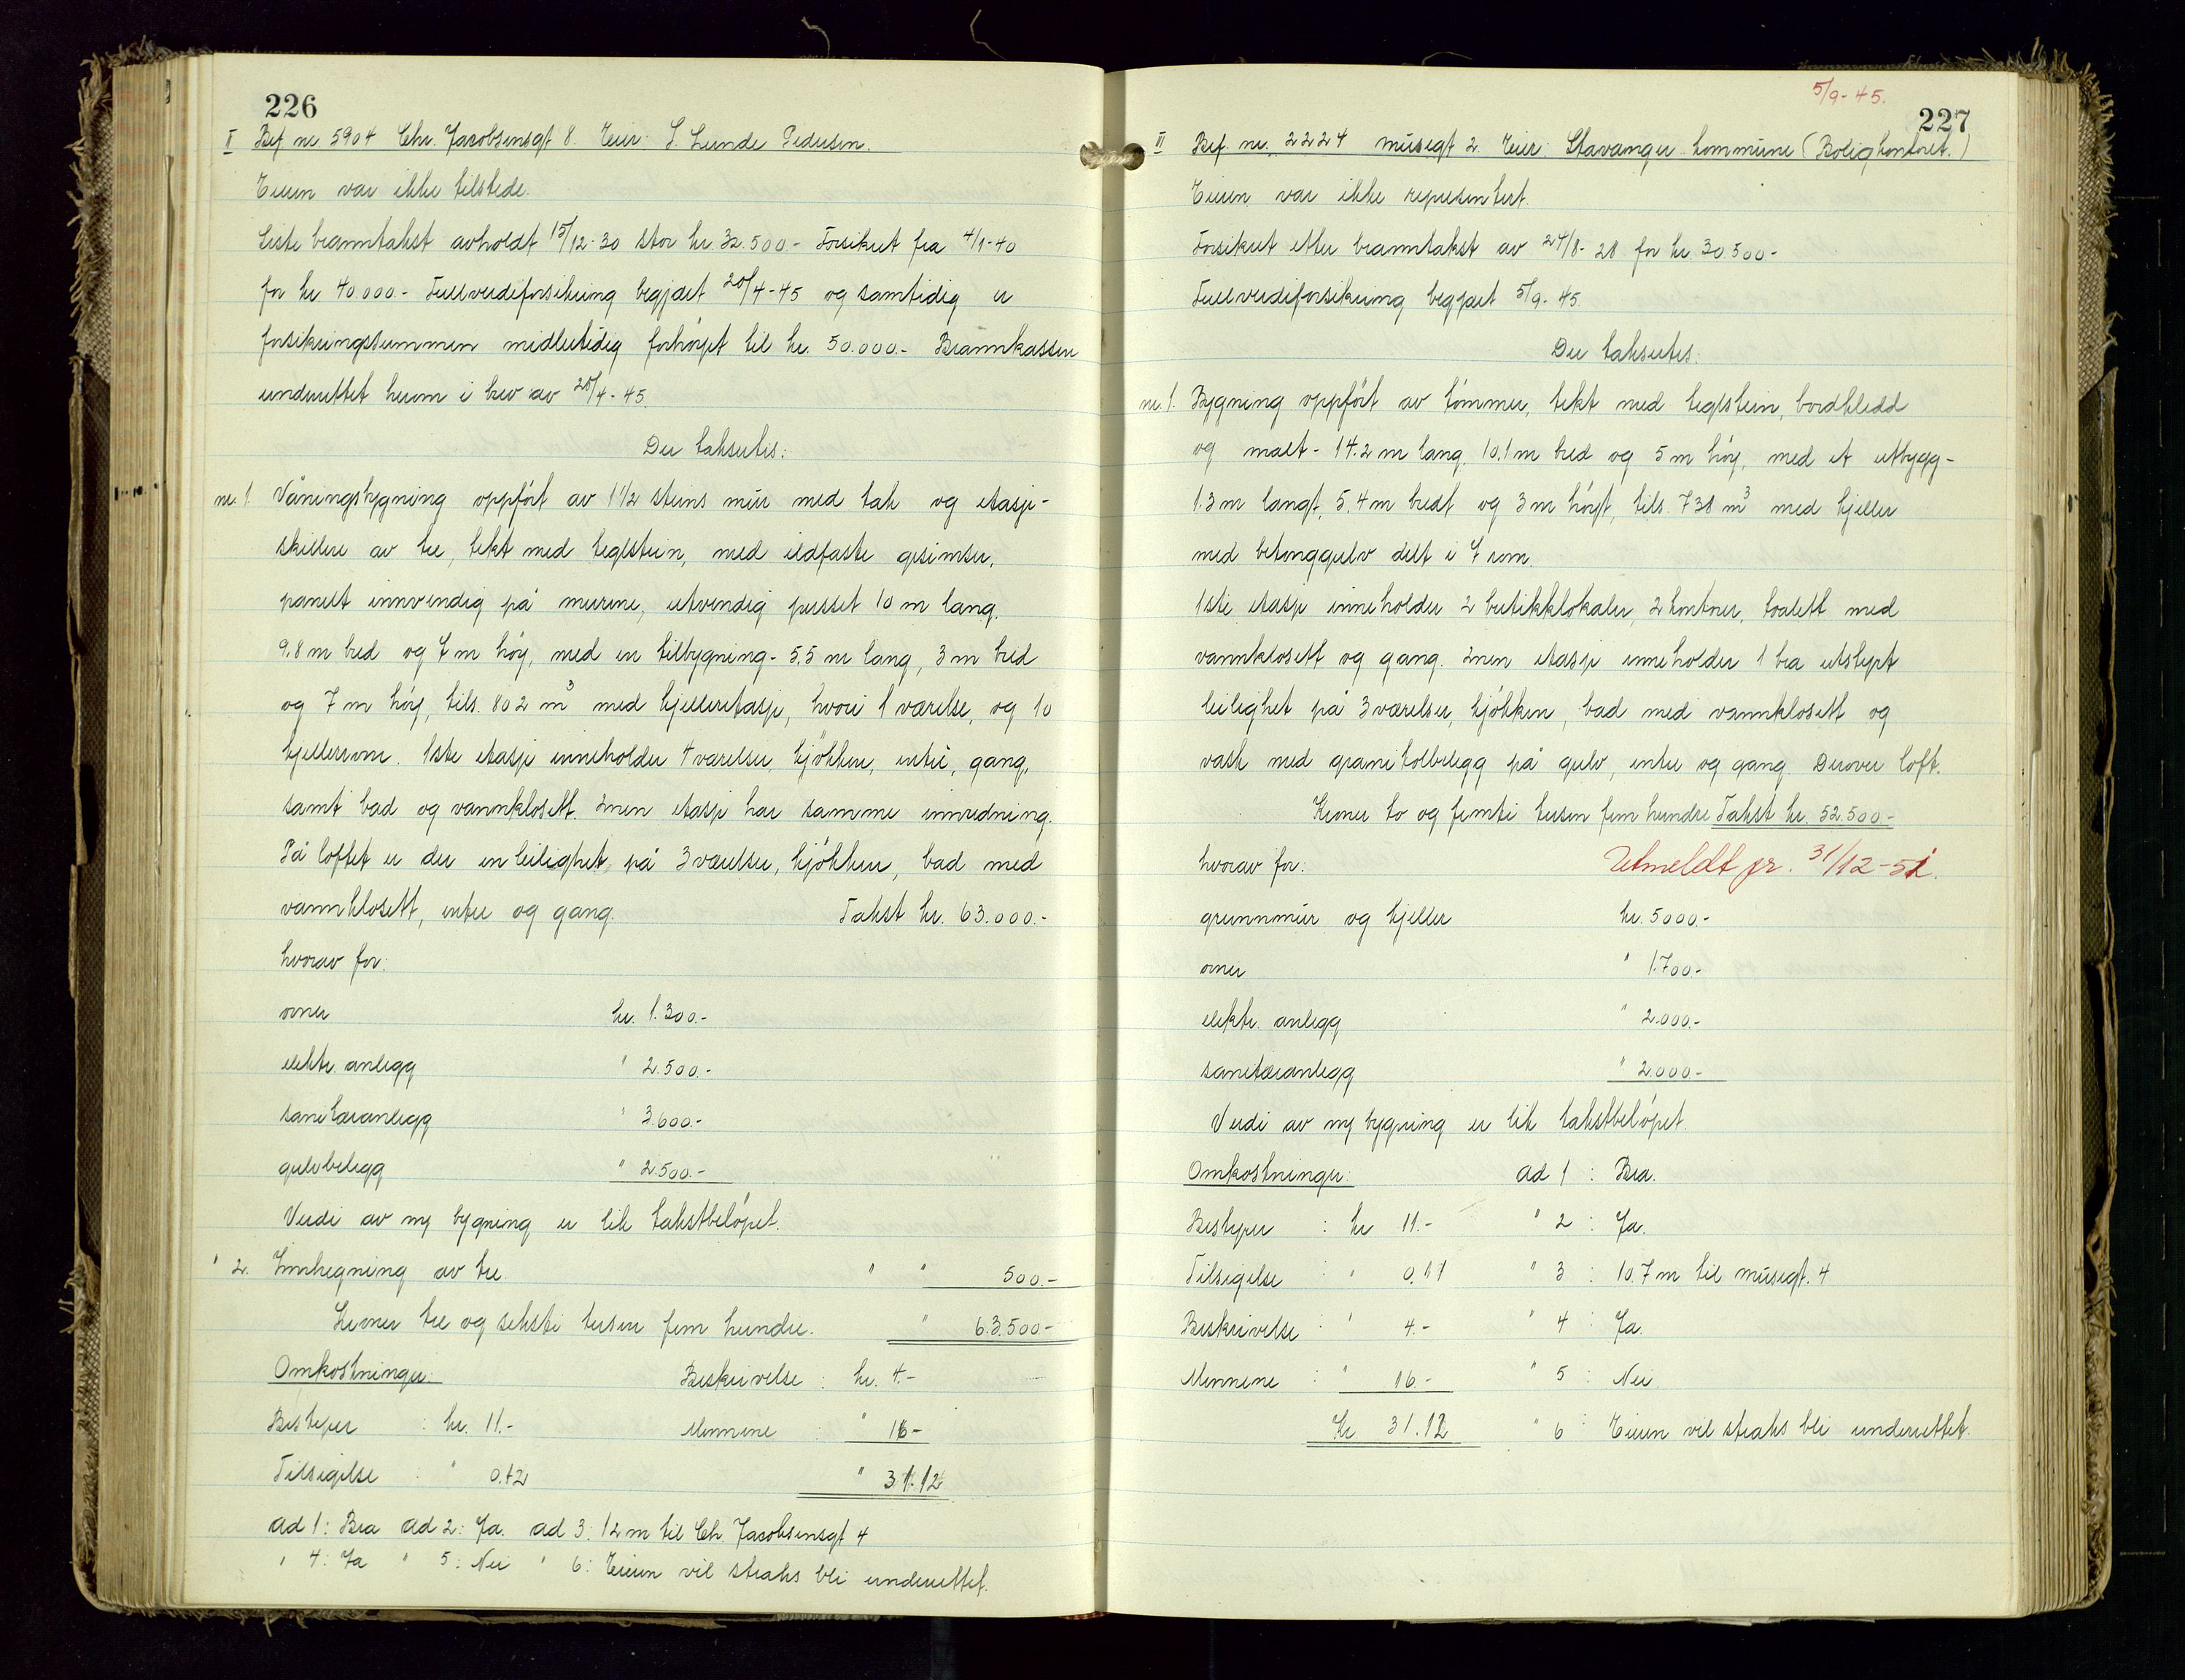 226
II Bef. nr. 5904 Chr. Jacobsensgt 8. Eier: S. Lunde Pedersen.
Eieren var ikke tilstede.
Siste branntakst avholdt 15/12-30 stor kr. 32.500.- Forsikret fra 4/1-40
for kr 40.000.- Fullverdiforsikring begjært 20/4-45 og samtidig er
forsikringssummen midlertidig forhöyet til kr. 50.000.- Brannkassen
underrettet herom i brev av 20/4-45.
Der takseres:
nr. 1. Våningsbygning oppfört av 1 1/2 steins mur med tak og etasje-
skillere av tre, tekt med teglstein, med ildfaste gesimser,
panelt innvendig på murene, utvendig pusset 10 m lang.
9.8 m bred og 7 m höy, med en tilbygning - 5,5 m lang, 3 m bred
og 7 m höy, tils. 802 m3 med kjelleretasje, hvori 1 værelse, og 10
kjellerrom. 1ste etasje inneholder 4 værelser, kjökken, entré, gang,
samt bad og vannklosett. 2nen etasje har samme innredning.
På loftet er der en leilighet på 3 værelser, kjökken, bad med
vannklosett, entre og gang. Takst kr. 63.000.-
hvorav for:
ovner kr. 1.300.-
elektr. anlegg " 2.500.-
sanitæranlegg " 3.600.-
gulvbelegg " 2.500.-
Verdi av ny bygning er lik takstbelöpet.
" 2. Innhegning av tre. " " 500.-
Kroner tre og seksti tusen fem hundre. " 63.500-
Omkostninger: Beskrivelse : kr. 4.-
Bestyrer : kr. 11.- Mennene : " 16-
Tilsigelse : " 0.12 " 31.12
ad 1: Bra ad 2: Ja. ad 3: 12 m til Ch. Jacobsensgt 4
" 4: Ja " 5: Nei " 6: Eieren vil straks bli underrettet.
5/9-45.
227
II Bef. nr. 2224 Musegt 2. Eier: Stavanger kommune (Boligkontoret.)
Eieren var ikke representert.
Forsikret etter branntakst av 24/8-28 for kr. 30.500-
Fullverdiforsikring begjært 5/9-45.
Der takseres:
nr. 1. Bygning oppfört av tömmer, tekt med teglstein, bordkledd
og malt - 14.2 m lang, 10.1 m bred og 5 m höy, med et utbygg-
1.3 m langt, 5.4 m bredt og 3 m höyt, tils. 738 m3 med kjeller
med betonggulv delt i 7 rom.
1ste etasje inneholder 2 butikklokaler, 2 kontorer, toalett med
vannklosett og gang. 2nen etasje inneholder 1 bra utstyrt
leilighet på 3 værelser, kjökken, bad med vannklosett og
vask med granitolbelegg på gulv, entre og gang. Derover loft.
Kroner to og femti tusen fem hundre Takst kr. 52.500.-
hvorav for: Utmeldt pr. 31/12-51.
grunnmur og kjeller kr. 5000.-
ovner " 1.700-
elektr. anlegg " 2.000.-
sanitæranlegg " 2.000.-
Verdi av ny bygning er lik takstbelöpet.
Omkostninger: ad 1 : Bra.
Bestyrer : kr 11.- " 2 : Ja.
Tilsigelse : " 0.11 " 3 : 10.7 m til Musegt. 4
Beskrivelse : " 4.- " 4 : Ja.
Mennene : " 16.- " 5 : Nei.
Kr 31.12 " 6 : Eieren vil straks bli underrettet.